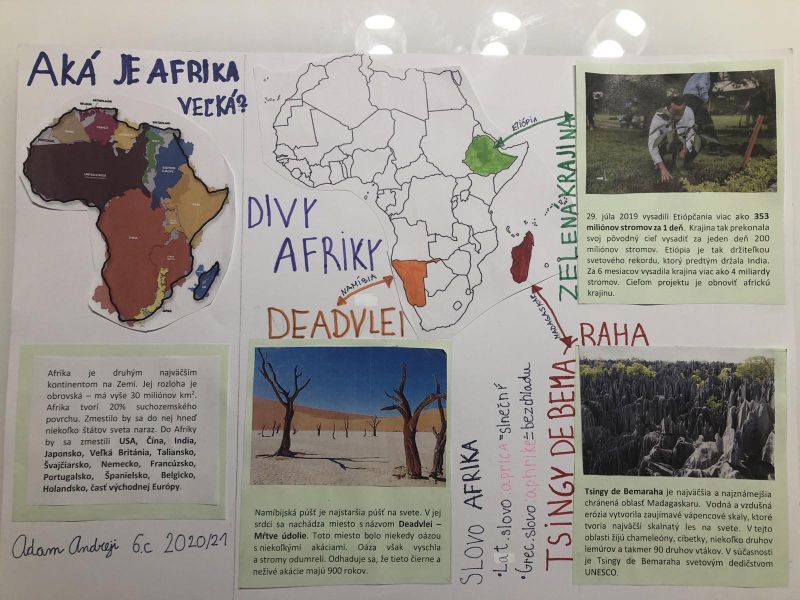 AKÁ JE AFRIKA
VEĽKÁ?
Afrika je druhým najväčším
kontinentom na Zemi. Jej rozloha je
obrovská – má vyše 30 miliónov km².
Afrika tvorí 20% suchozemského
povrchu. Zmestilo by sa do nej hneď
niekoľko štátov sveta naraz. Do Afriky
by sa zmestili USA, Čína, India,
Japonsko, Veľká Británia, Taliansko,
Švajčiarsko, Nemecko, Francúzsko,
Portugalsko, Španielsko, Belgicko,
Holandsko, časť východnej Európy.
Adam Andreji 6.c 2020/21
DIVY
AFRIKY
ETIÓPIA
NAMÍBIA
MADAGASKAR
DEADVLEI
Namíbijská púšť je najstaršia púšť na svete. V jej
srdci sa nachádza miesto s názvom Deadvlei –
Mŕtve údolie. Toto miesto bolo niekedy oázou
s niekoľkými akáciami. Oáza však vyschla
a stromy odumreli. Odhaduje sa, že tieto čierne a
neživé akácie majú 900 rokov.
SLOVO AFRIKA
• Lat. slovo aprica=slnečný
• Grec. slovo aphrike=bez chladu
ZELENÁ KRAJINA
29. júla 2019 vysadili Etiópčania viac ako 353
miliónov stromov za 1 deň. Krajina tak prekonala
svoj pôvodný cieľ vysadiť za jeden deň 200
miliónov stromov. Etiópia je tak držiteľkou
svetového rekordu, ktorý predtým držala India.
Za 6 mesiacov vysadila krajina viac ako 4 miliardy
stromov. Cieľom projektu je obnoviť africkú
krajinu.
TSINGY DE BEMA
RAHA
Tsingy de Bemaraha je najväčšia a najznámejšia
chránená oblasť Madagaskaru. Vodná a vzdušná
erózia vytvorila zaujímavé vápencové skaly, ktoré
tvoria najväčší skalnatý les na svete. V tejto
oblasti žijú chameleóny, cibetky, niekoľko druhov
lemúrov a takmer 90 druhov vtákov. V súčasnosti
je Tsingy de Bemaraha svetovým dedičstvom
UNESCO.